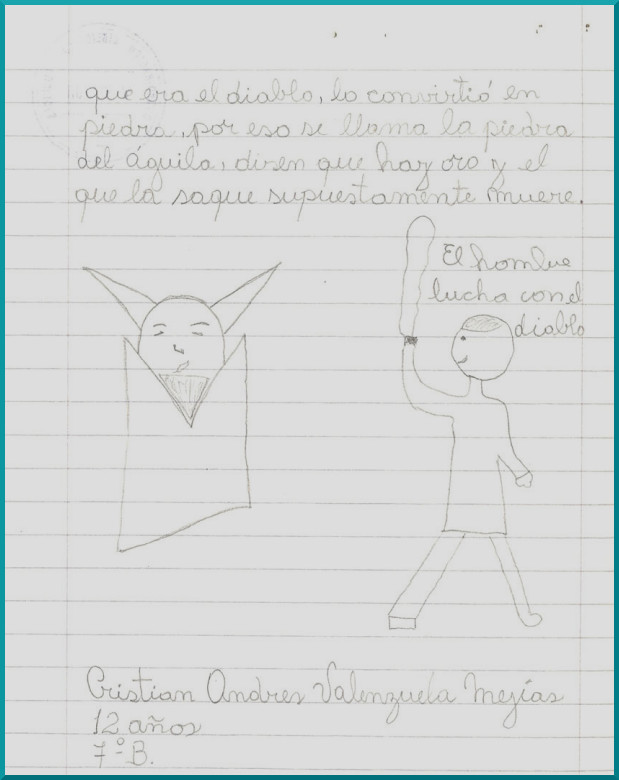 que era el diablo, lo convirtió en
piedra, por eso se llama la piedra
del águila, diren que hay oro y el
que la saque supuestamente muere.
El hombre
lucha con el
diablo
Cristian Andres Valenzuela Mejías
12 años
7º B.